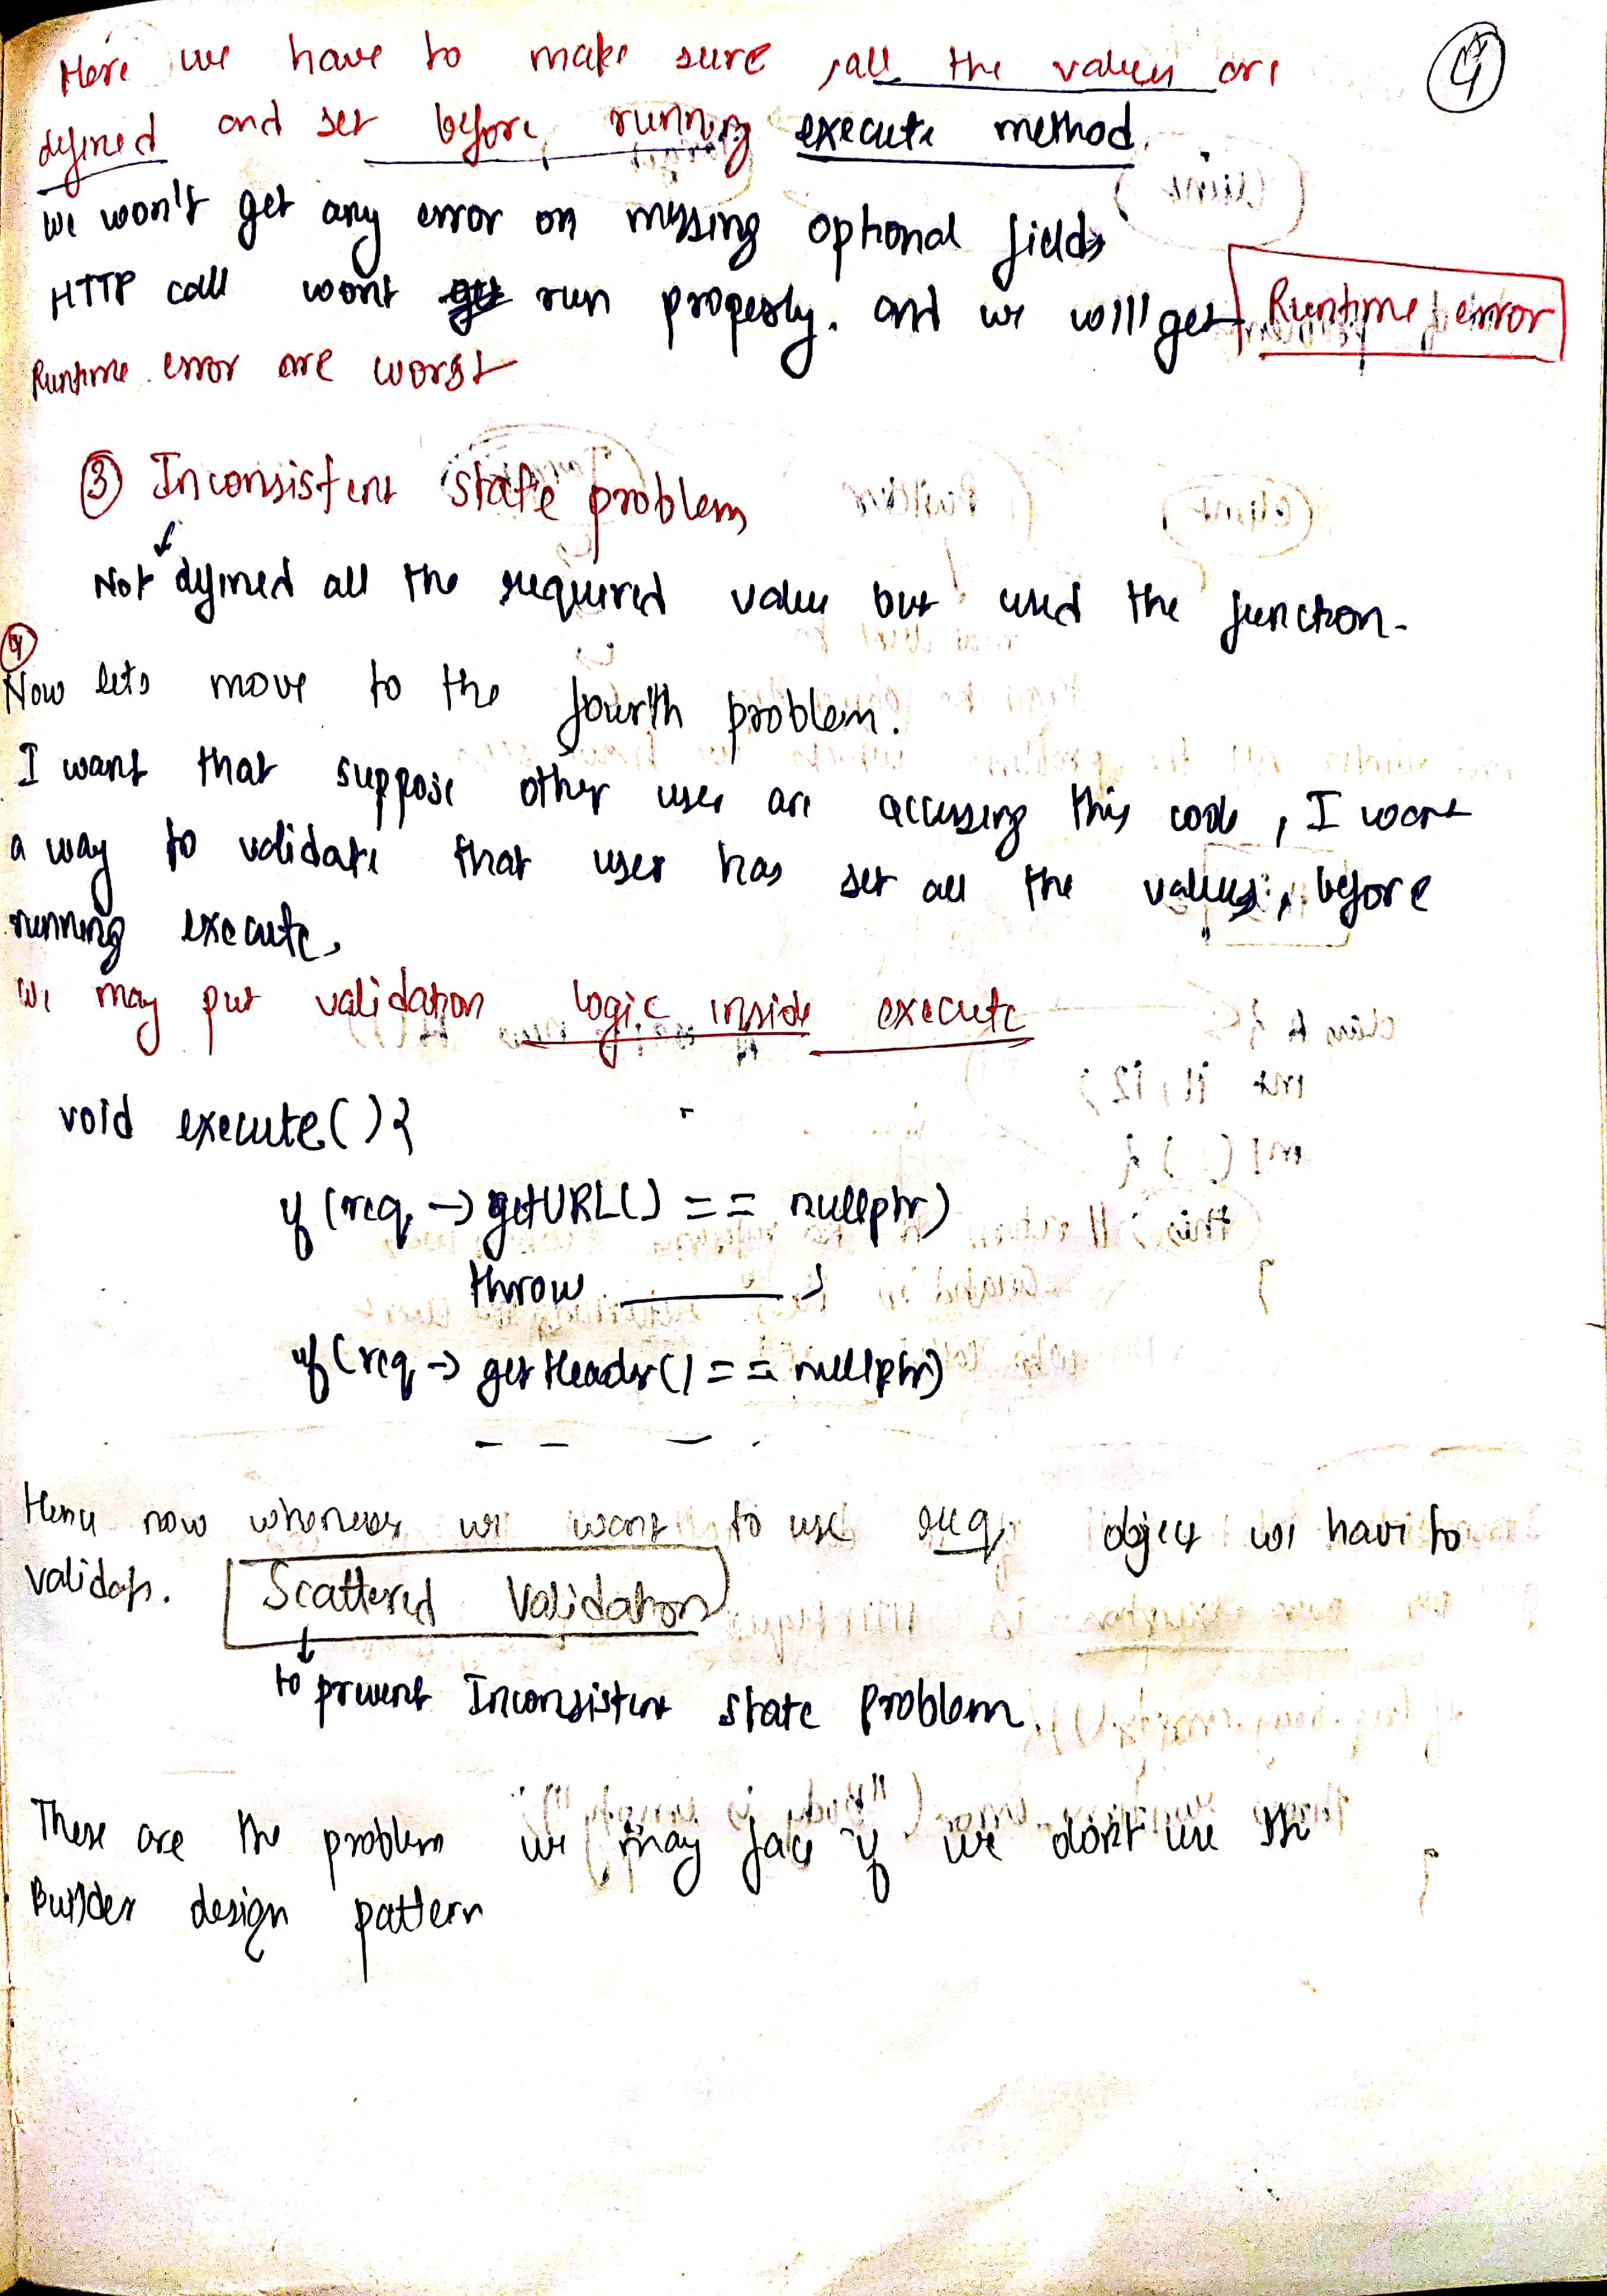 ④
Here we have to make sure, all the values are
defined and set before running execute method.
We won't get any error on missing optional fields
HTTP call wont run properly. and we will get Runtime error
Runtime error are worst
③ Inconsistent state problem
Not defined all the required value but used the function.
④
Now lets move to the fourth problem.
I want that suppose other user are accessing this code, I want
a way to validate that user has set all the values, before
running execute.
We may put validation logic inside execute
void execute(){
if (req → getURL() == nullptr)
throw ______;
if (req → getHeader() == nullptr)
_ _ _ .
Hence now whenever we want to use req object we have to
validate. Scattered Validation
to prevent Inconsistent state problem
These are the problem we may face if we don't use the
Builder design pattern